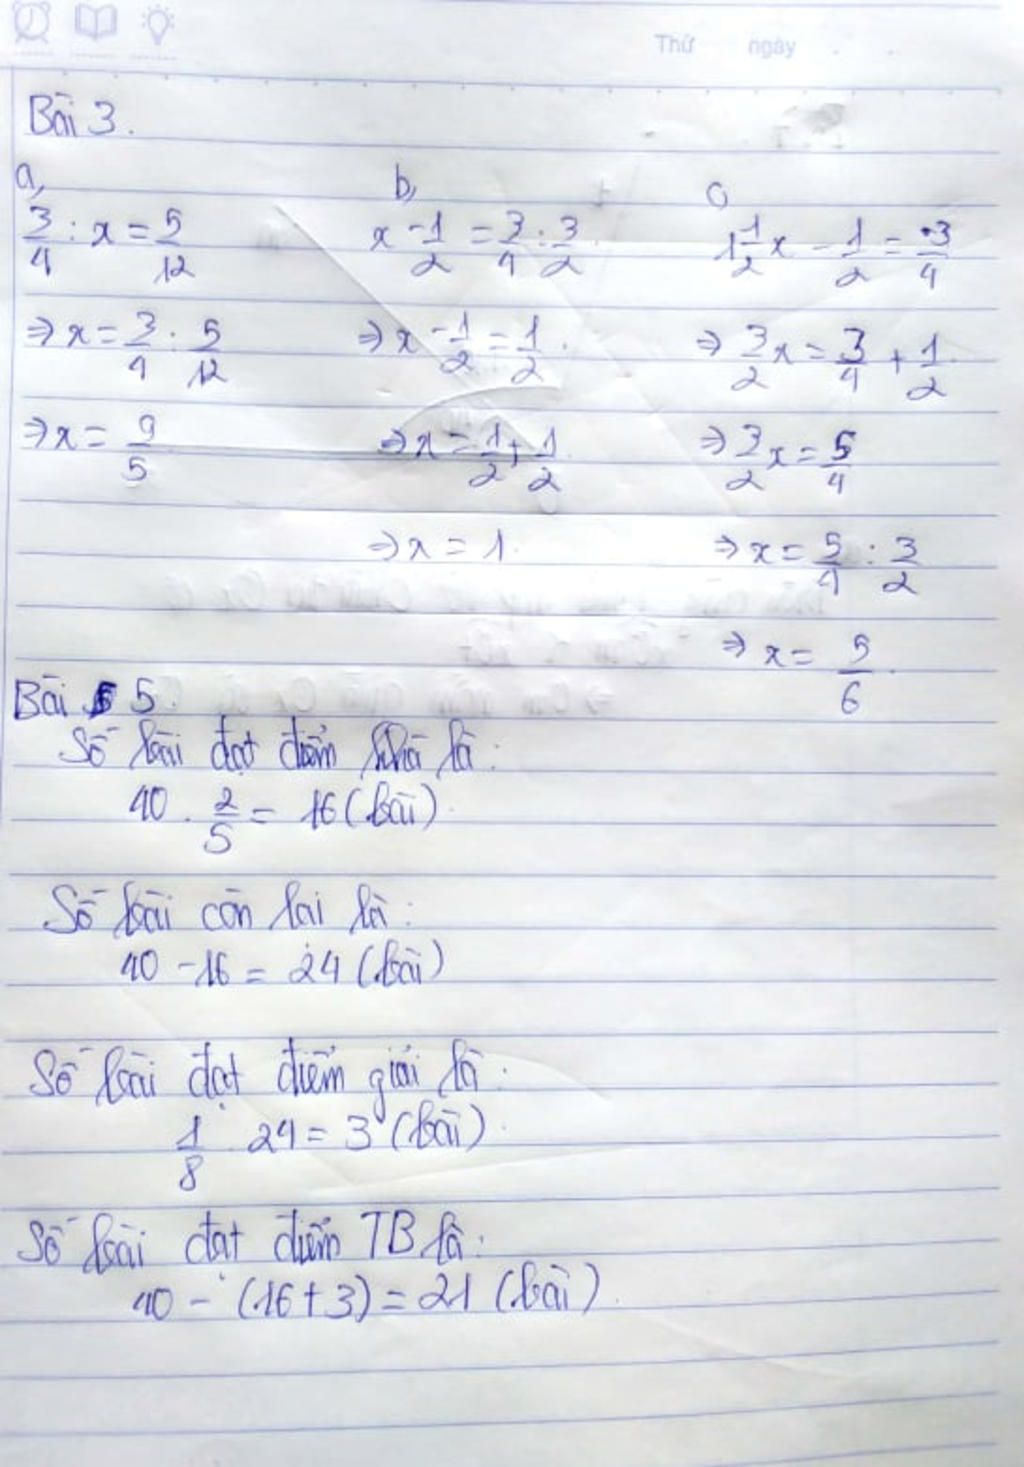 Thứ ngày
Bài 3.
a, b, c,
3/4 : x = 5/12
x - 1/2 = 3/4 : 3/2
1 1/2 x - 1/2 = 3/4
⇒ x = 3/4 : 5/12
⇒ x - 1/2 = 1/2.
⇒ 3/2 x = 3/4 + 1/2.
⇒ x = 9/5
⇒ x = 1/2 + 1/2
⇒ 3/2 x = 5/4
⇒ x = 1.
⇒ x = 5/4 : 3/2
⇒ x = 5/6.
Bài 5.
Số bài đạt điểm khá là:
40 . 2/5 = 16 (bài).
Số bài còn lai là:
40 - 16 = 24 (bài)
Số bài đạt điểm giỏi là:
1/8 . 24 = 3 (bài).
Số bài đạt điểm TB là:
40 - (16 + 3) = 21 (bài).